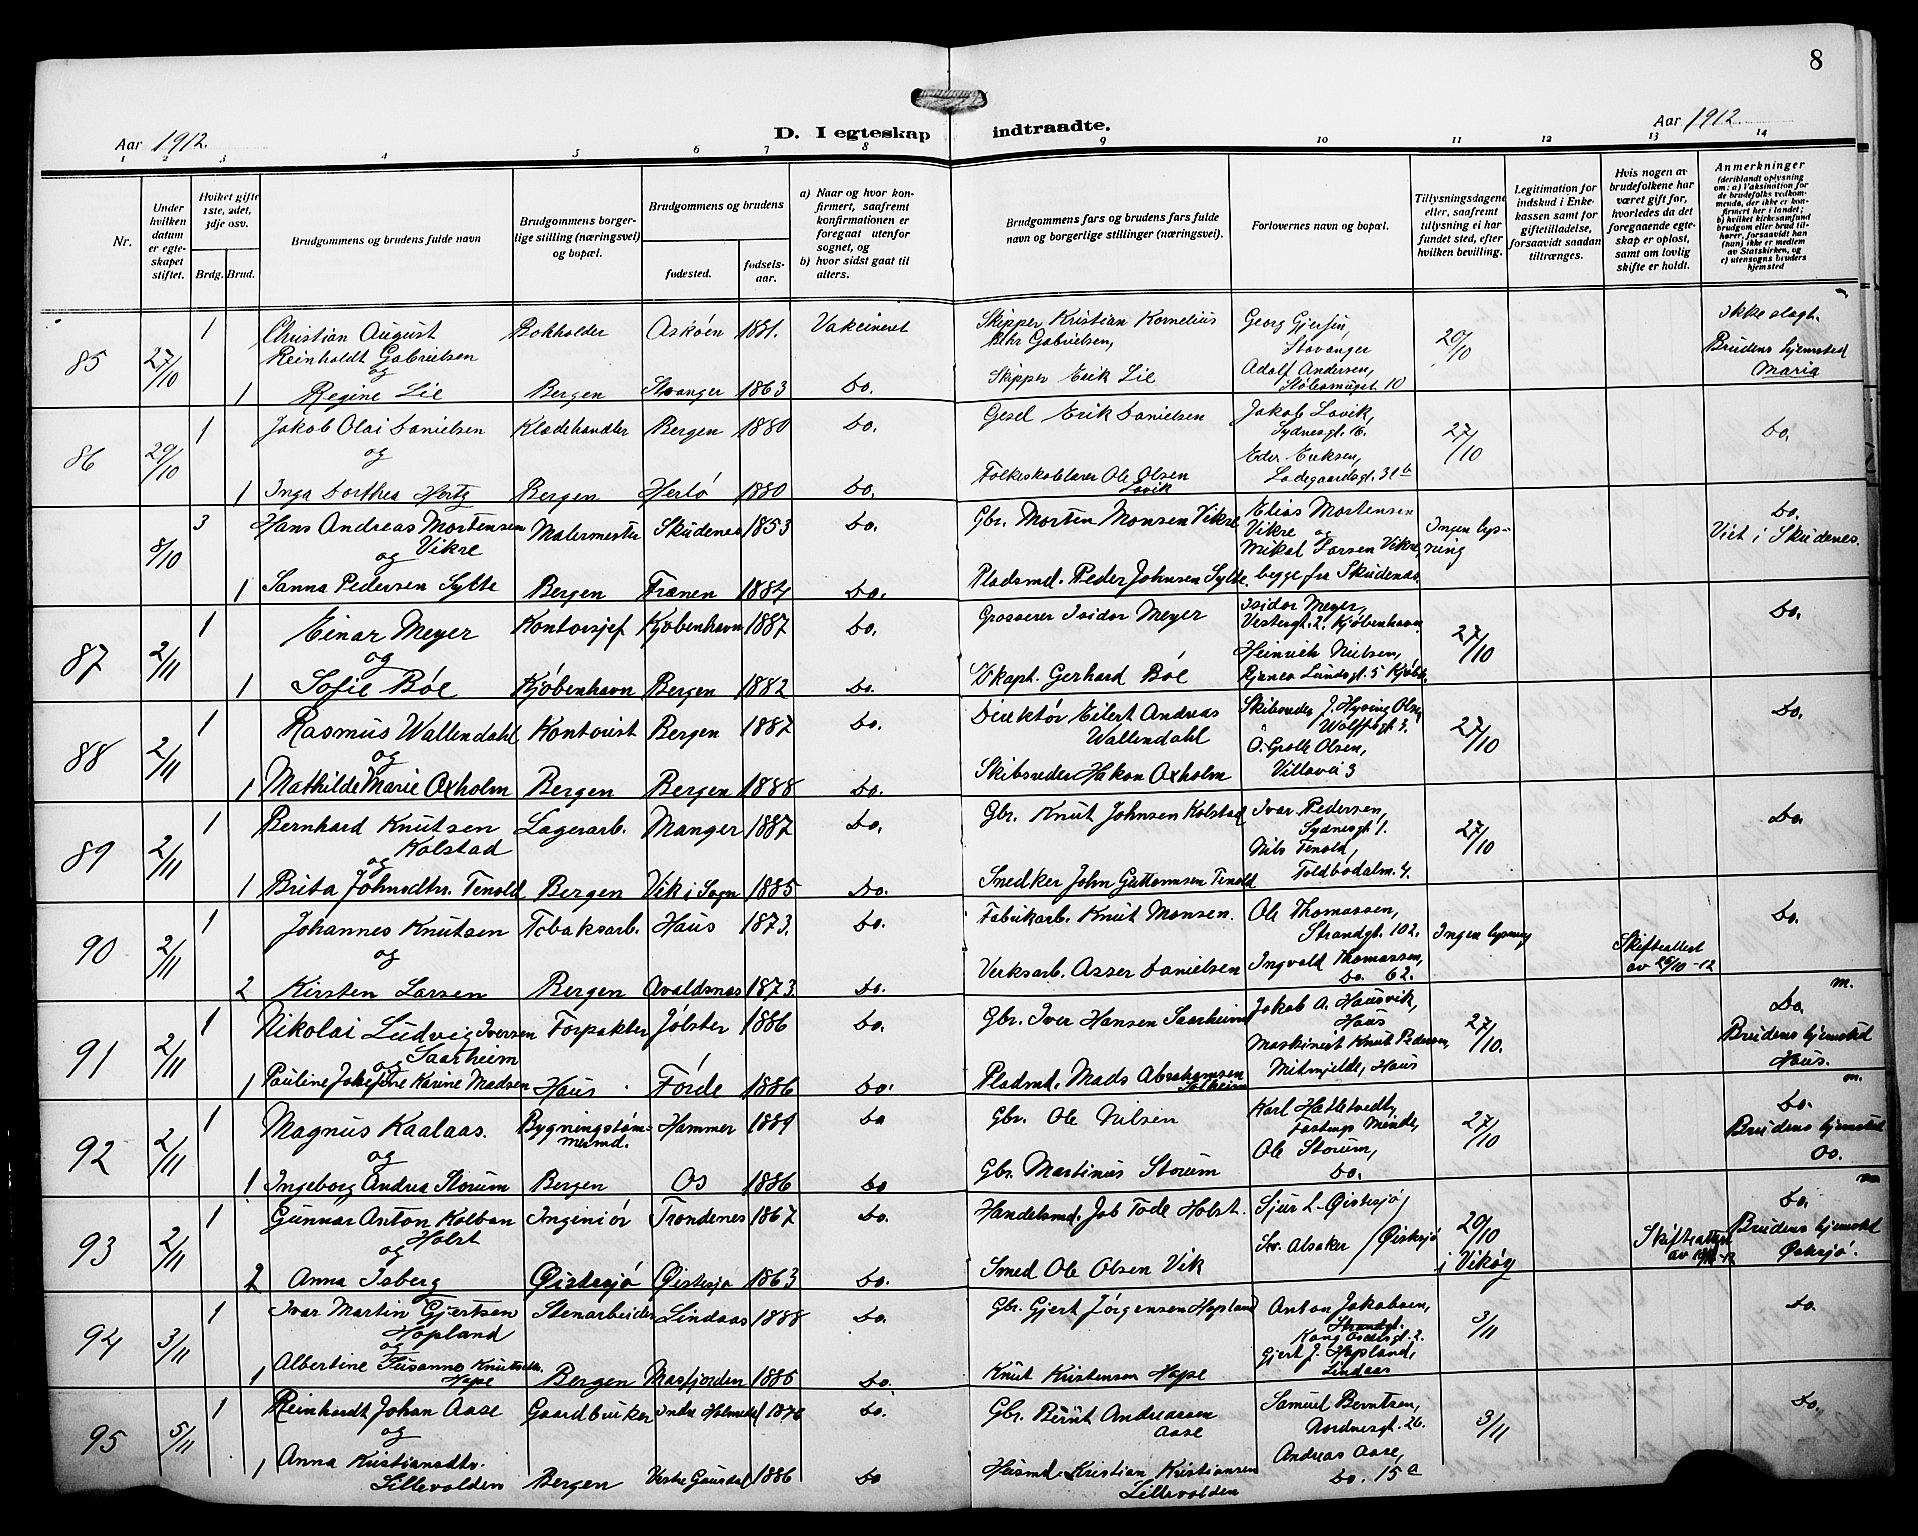 8
Aar 1912.
D. I egteskap indtraadte.
Aar 1912.
1 2 3 4 5 6 7 8 9 10 11 12 13 14
Nr.
Under hvilken datum er egteskapet stiftet.
Hvilket gifte 1ste, 2det, 3dje osv.
Brdg. Brud.
Brudgommens og brudens fulde navn
Brudgommens borgerlige stilling (næringsvei) og bopæl.
Brudgommens og brudens
fødested. fødselsaar.
a) Naar og hvor konfirmert, saafremt konfirmationen er foregaat utenfor sognet, og
b) hvor sidst gaat til alters.
Brudgommens fars og brudens fars fulde navn og borgerlige stillinger (næringsvei).
Forlovernes navn og bopæl.
Tillysningsdagene eller, saafremt tillysning ei har fundet sted, efter hvilken bevilling.
Legitimation for indskud i Enkekassen samt for giftetilladelse, forsaavidt saadan tiltrænges.
Hvis nogen av brudefolkene har været gift før, hvorledes da det foregaaende egteskap er opløst, samt om lovlig skifte er holdt.
Anmerkninger (deriblandt oplysning om: a) Vaksination for de brudefolks vedkommende, der ikke er konfirmert her i landet; b) hvilket kirkesamfund brudgom eller brud tilhører, forsaavidt han (hun) ikke er medlem av Statskirken, og c) utensogns bruders hjemsted
85 27/10 1 Christian August Reinholdt Gabrielsen Bokholder Askøen 1881. Vakcineret Skipper Kristian Kornelius Gabrielsen, Georg Gjersen, Stavanger 20/10 ikke slegt.
og
1 Regine Lie Bergen Stvanger 1863 Do. Skipper Erik Lie Adolf Andersen, Stølesmuget 10 Brudens hjemsted Maria
86 29/10 1 Jakob Olai Danielsen Klædehandler Bergen 1880 Do. Gesel Erik Danielsen Jakob Lovik, Sydnesgt. 16. 27/10 Do.
og
1 Inga Dorthea Hertz Bergen Herlø 1880 Do. Folkeskolelærer Ole Olsen Lovik Eder Eriksen, Ladegaardsgt. 31b
8/10 3 Hans Andreas Mortensen Vikre Malermester Skudenes 1853 Do. Gbr. Morten Monsen Vikre Elias Mortensen Vikre og Ingen lysning Do.
og Viet i Skudenes.
1 Sanna Pedersen Sylte Bergen Frænen 1884 Do. Pladsmd. Peder Johnsen Sylte. Mikal Larsen Vikre, begge fra Skudenes
87 2/11 1 Einar Meyer Kontorsjef Kjøbenhavn 1887 Do. Grosserer Isidor Meyer Isidor Meyer, Vestergt. 2. Kjøbenhavn 27/10 Do.
og
1 Sofie Bøe Kjøbenhavn Bergen 1882 Do. Skapt. Gerhard Bøe Heinrich Nielsen,
88 2/11 1 Rasmus Wallendahl Kontorist Bergen 1887 Do. Direktør Eilert Andreas Wallendahl Skibsreder J. Hysing Olsen Wolffsgt 3. 27/10 Do.
og
1 Mathilde Marie Oxholm Bergen Bergen 1888 Do. Skibsreder Hakon Oxholm O. Grolle Olsen, Villavei 3
89 2/11 1 Bernhard Knutsen Kolstad Lagerarb. Manger 1887 Do. Gbr. Knut Johnsen Kolstad Ivar Pedersen, Sydnesgt 1. 27/10 Do.
og
1 Brita Johnsdtr. Tenold Bergen Vik i Sogn 1885 Do. Snedker John Guttormsen Tenold Nils Tenold, Toldbodalm. 4.
90 2/11 1 Johannes Knutsen Tobaksarb. Haus 1873. Do. Fabrikarb. Knut Monsen. Ole Thomassen, Strandgt. 102. Ingen lysning Skifteattest av 26/10-12 Do.
og
2 Kirsten Larsen Bergen Avaldsnes 1873. Do. Verksarb. Asser Danielsen Ingvald Thomassen, Do. 62. m.
91 2/11 1 Nikolai Ludvig Iversen Saarheim Forpakter Jølster 1886 Do. Gbr. Iver Hansen Saarheim Jakob A. Hausvik, Haus 27/10. Do.
og
1 Pauline Josefine Karine Madsen Haus Førde 1886 Do. Pladsmd. Mads Abrahamsen Solheim Maskinist Knut Pedersen, Mitmjelde, Haus Brudens hjemsted Haus. m.
92 2/11 1 Magnus Kaalaas. Bygningstømmermd. Hammer 1889 Do Gbr. Ole Nilsen Karl Hatletvedt, Fastings Minde, 27/10 Do.
og
1 Ingeborg Andrea Storum Bergen Os 1886 Do Gbr. Martinus Storum Ole Storum, Do. Brudens hjemsted Os. m
93 2/11 1 Gunnar Anton Kolban Holst Ingeniør Trondenes 1867 Do. Handelsmd. Job Tode Holst. Sjur L. Øistesjø 20/10 i Vikøy Skifteattest Do.
og
2 Anna Isberg Øistesjø Øistesjø 1863 Do. Smed Ole Olsen Vik Alsaker Øistesjø Brudens hjemsted Østesjø.
94 3/11 1 Ivar Martin Gjertsen Hopland Stenarbeider Lindaas 1888 Do. Gbr. Gjert Jørgensen Hopland Anton Jakobsen, Strandgt. Kong Oscarsgt. 2. 3/11 Do.
og
1 Albertine Susanne Knutsdtr. Hope Bergen Masfjorden 1885 Do. Knut Kristensen Hope Gjert J. Hopland, Lindaas
95 5/11 1 Reinhardt Johan Aase Gaardbruker Indre Holmedal 1876 Do. Gbr. Bernt Andreassen Aase Samuel Berntsen, Nordnesgt. 26. 3/11 Do.
og
1 Anna Kristiansdtr. Lillevolden Bergen Vestre Gausdal 1886 Do Husmd. Kristian Kristiansen Lillevolden Andreas Aase, Do. 15a